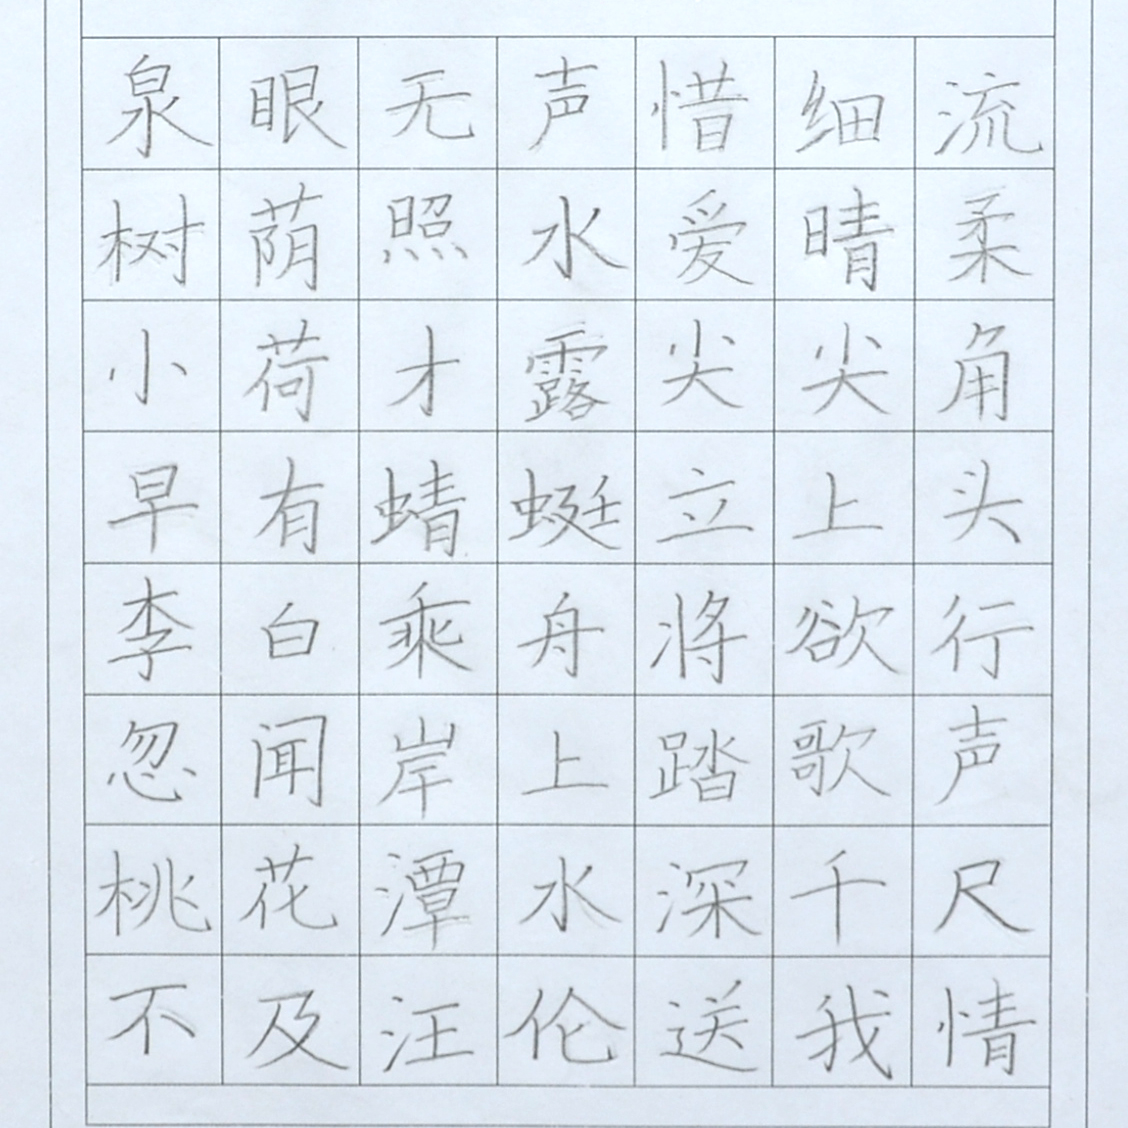 泉眼无声惜细流
树荫照水爱晴柔
小荷才露尖尖角
早有蜻蜓立上头
李白乘舟将欲行
忽闻岸上踏歌声
桃花潭水深千尺
不及汪伦送我情